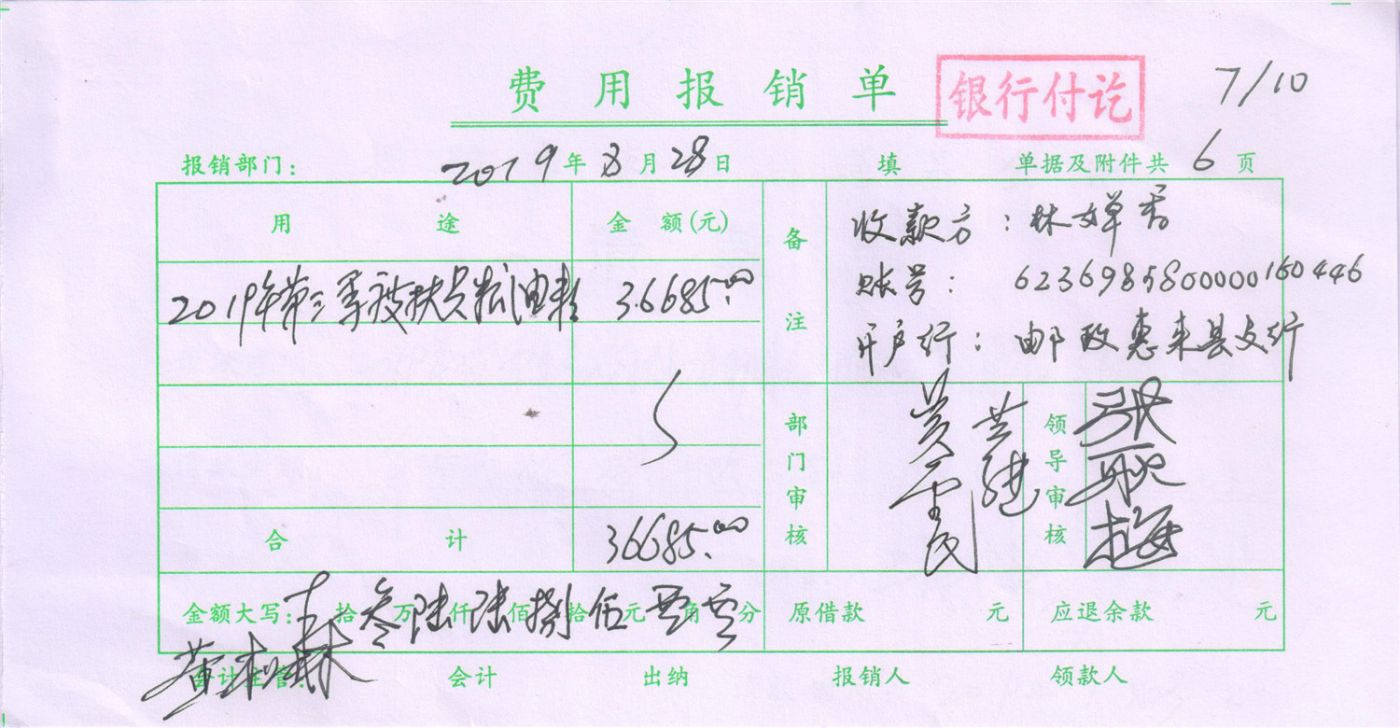 费用报销单
银行付讫
7/10
报销部门：
2019年8月28日
填
单据及附件共6页
用途
金额(元)
备注
收款方：林婵香
账号：6236985800000160446
开户行：邮政惠来县支行
2019年第三季被扶员粮油款
36685.00
部门审核
领导审核
合计
36685.00
金额大写：拾叁万陆仟陆佰捌拾伍元零角零分
原借款 元
应退余款 元
会计主管：
会计
出纳
报销人
领款人